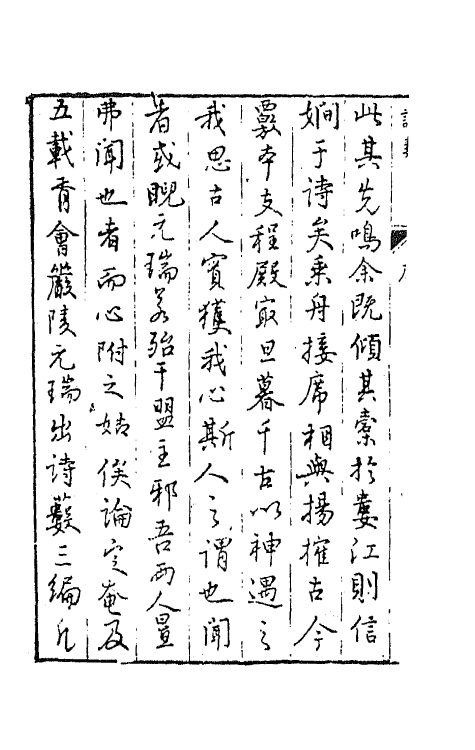 此其先鳴余既傾其橐於婁江則信
嫺于诗矣乘舟接席相與揚搉古今
覈本支程殿最旦暮千古以神遇之
我思古人實獲我心斯人之謂也聞
者或睨元瑞若殆干盟主邪吾兩人置
弗聞也者而心附之姑俟論定奄及
五載胥會嚴陵元瑞出诗藪三編凡